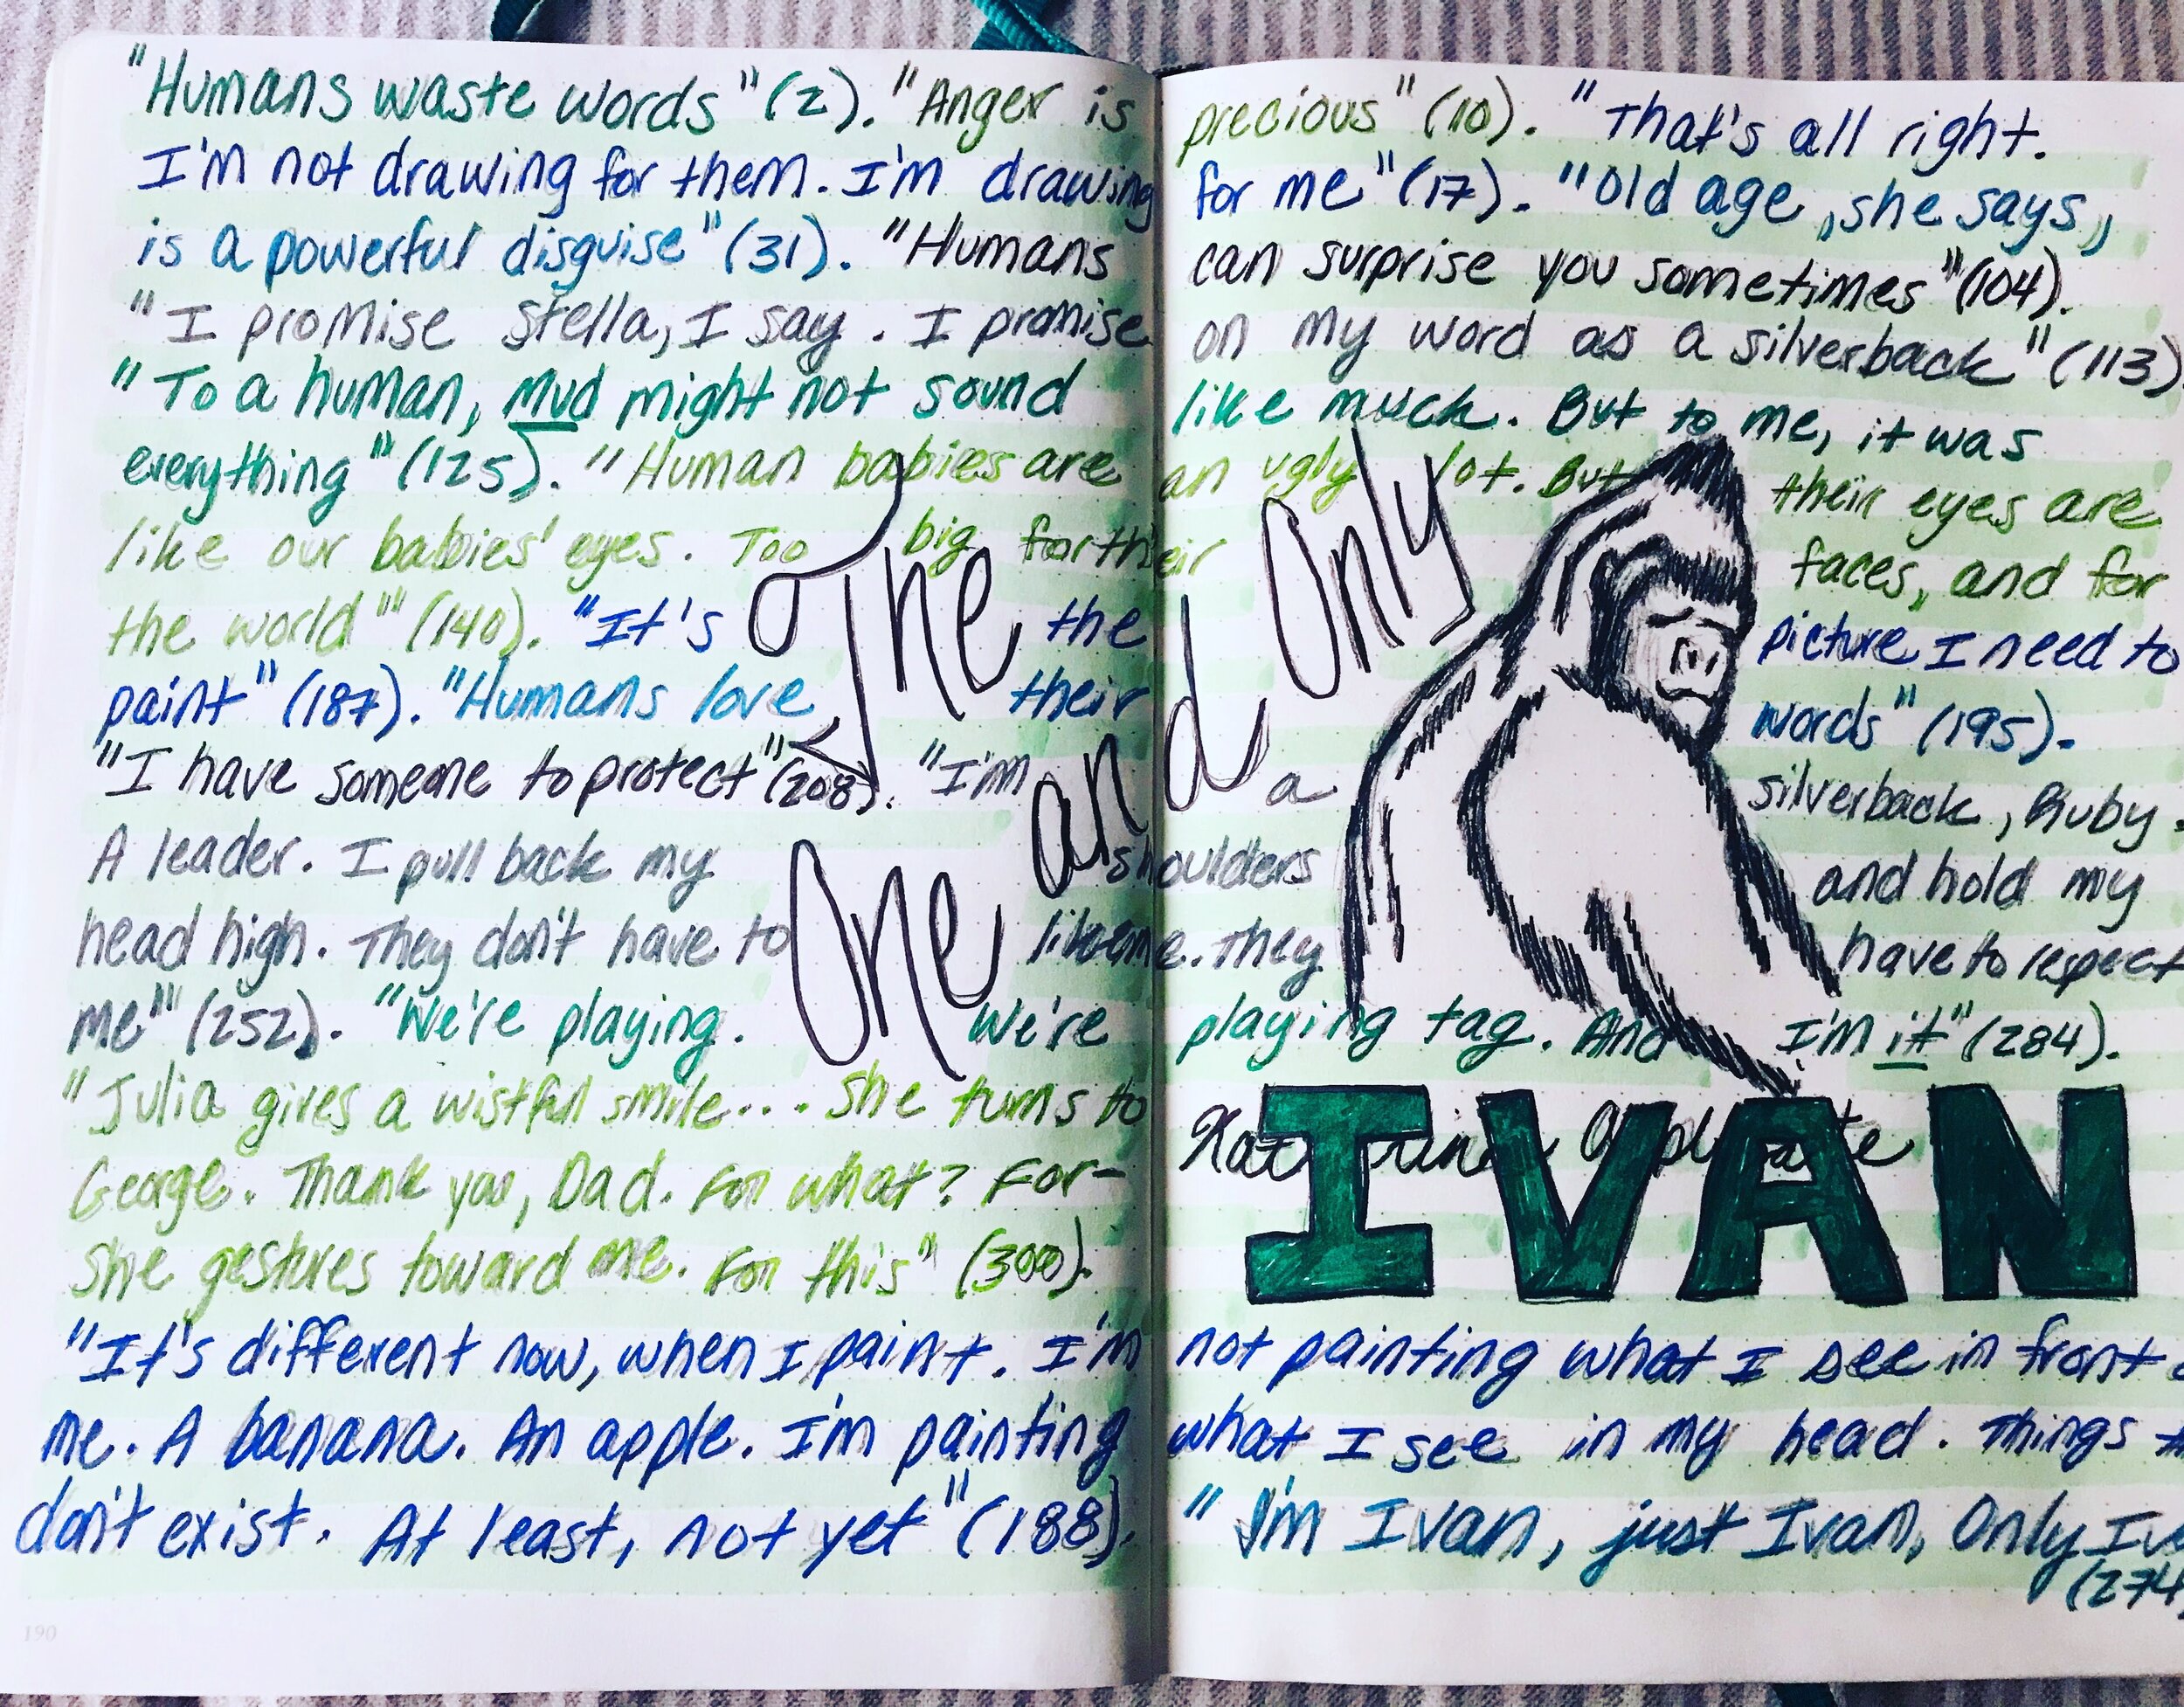 "Humans waste words" (2). "Anger is precious" (10). "That's all right.
I'm not drawing for them. I'm drawing for me" (17). "Old age, she says,
is a powerful disguise" (31). "Humans can surprise you sometimes" (104).
"I promise Stella, I say. I promise on my word as a silverback" (113)
"To a human, mud might not sound like much. But to me, it was
everything" (125). "Human babies are an ugly lot. But their eyes are
like our babies' eyes. Too big for their faces, and for
the world"" (140). "It's the picture I need to
paint" (187). "Humans love their words" (195).
"I have someone to protect" (208). "I'm a silverback, Ruby.
A leader. I pull back my shoulders and hold my
head high. They don't have to like me. They have to respect
me"" (252). "We're playing. We're playing tag. And I'm it" (284).
The One and Only
IVAN
"Julia gives a wistful smile... She turns to Katherine Applegate
George. Thank you, Dad. For what? For-
she gestures toward me. For this" (300).
"It's different now, when I paint. I'm not painting what I see in front
me. A banana. An apple. I'm painting what I see in my head. Things
don't exist. At least, not yet" (188). "I'm Ivan, just Ivan, Only
(274)
190